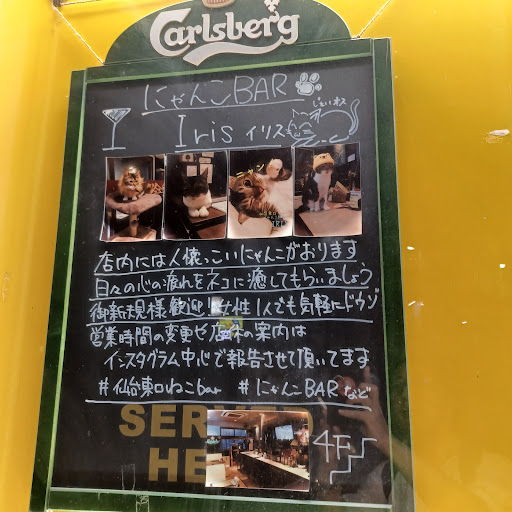 Carlsberg
にゃんこBAR
Iris イリス
店内には人懐っこいにゃんこがおります
日々の心の疲れをネコに癒してもらいましょう
御新規様歓迎!女性1人でも気軽にドウゾ
営業時間の変更や店休の案内は
インスタグラム中心で報告させて頂いてます
#仙台東口ねこbar #にゃんこBARなど
SERVED
HERE
4F